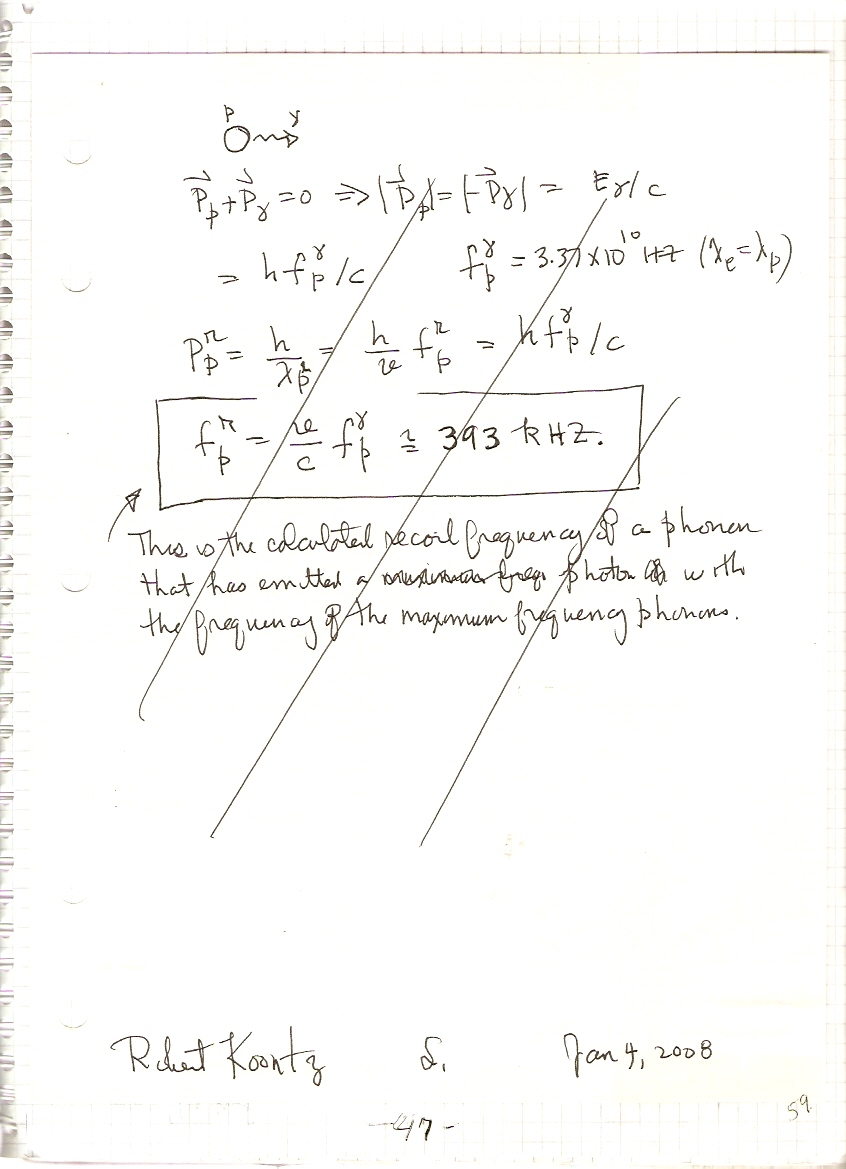 p γ
P⃗_p + P⃗_γ = 0 ⇒ |P⃗_p| = |-P⃗_γ| = E_γ/c
= h f_p^γ /c f_p^γ = 3.37 x 10^10 HZ (λ_e = λ_p)
P_p^r = h/λ_p^r = h/v f_p^r = h f_p^γ /c
f_p^r = v/c f_p^γ ≅ 393 kHZ.
This is the calculated recoil frequency of a phonon
that has emitted a photon with
the frequency of the maximum frequency phonons.
Robert Koontz S. Jan 4, 2008
-47-
59